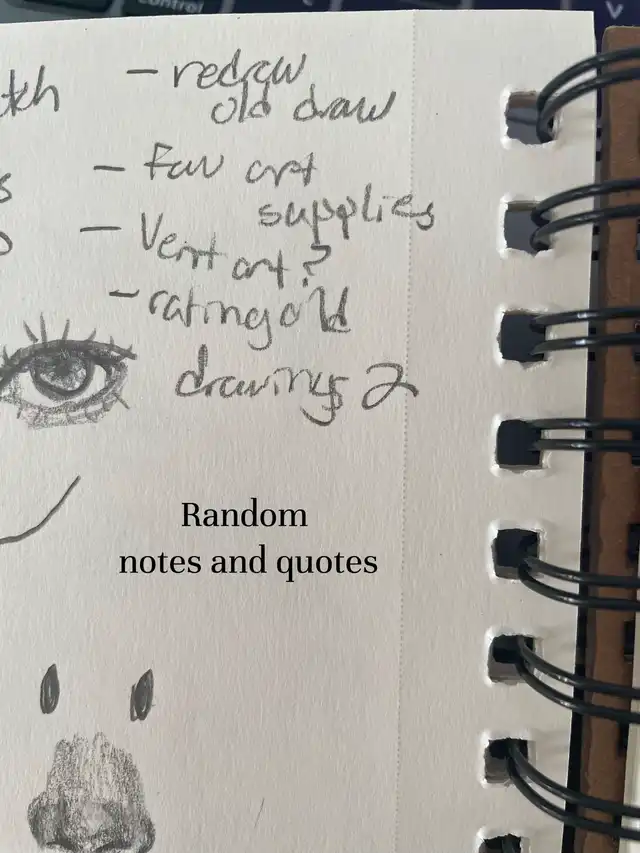 control
v
tch
- redraw
old draw
- Fav art
supplies
- Vent art?
- rating old
drawings 2
Random
notes and quotes